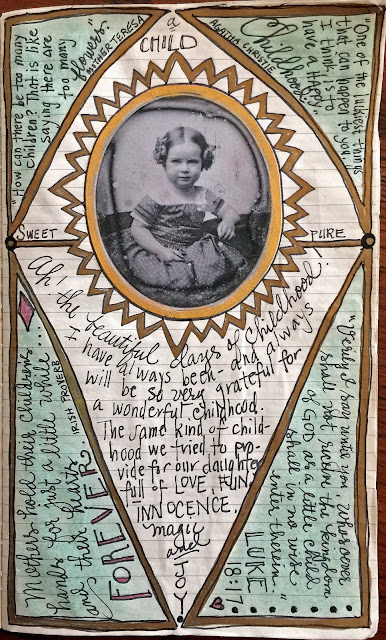 a
CHILD
"How can there be too many
children? That is like
saying there are
too many
flowers."
MOTHER TERESA
"One of the luckiest things
that can happen to you,
I think, is to
have a happy
Childhood."
AGATHA CHRISTIE
SWEET
PURE
Ah! the beautiful days of Childhood!
I have always been - and always
will be so very grateful for
a wonderful childhood.
The same kind of child-
hood we tried to pro-
vide for our daughter
full of LOVE, FUN,
INNOCENCE,
magic
and
JOY!
Mothers hold their childrens...
hands for just a little while...
and their hearts
FOREVER
IRISH PROVERB
"Verily I say unto you whosoever
shall not receive the kingdom
of God as a little child
shall in no wise
enter therein."
LUKE
18:17